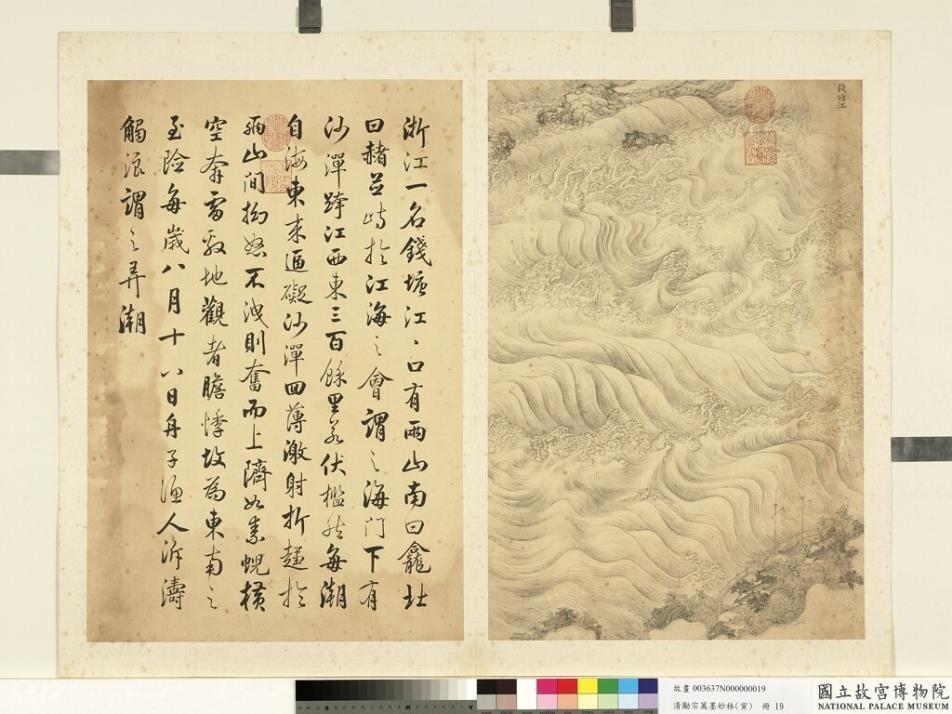 錢塘江
浙江一名錢塘江、口有兩山南曰龕北
曰赭並峙於江海之會謂之海門下有
沙潬跨江西東三百餘里若伏檻然每潮
自海東來逼礙沙潬回薄激射折趨於
兩山間拗怒不洩則奮而上隮如素蜺橫
空奔雷殷地觀者膽悸故為東南之
至險每歲八月十八日舟子漁人泝濤
觸浪謂之弄潮
故畫 003637N000000019
清勵宗萬墨妙林(寅) 冊 19
國立故宮博物院
NATIONAL PALACE MUSEUM